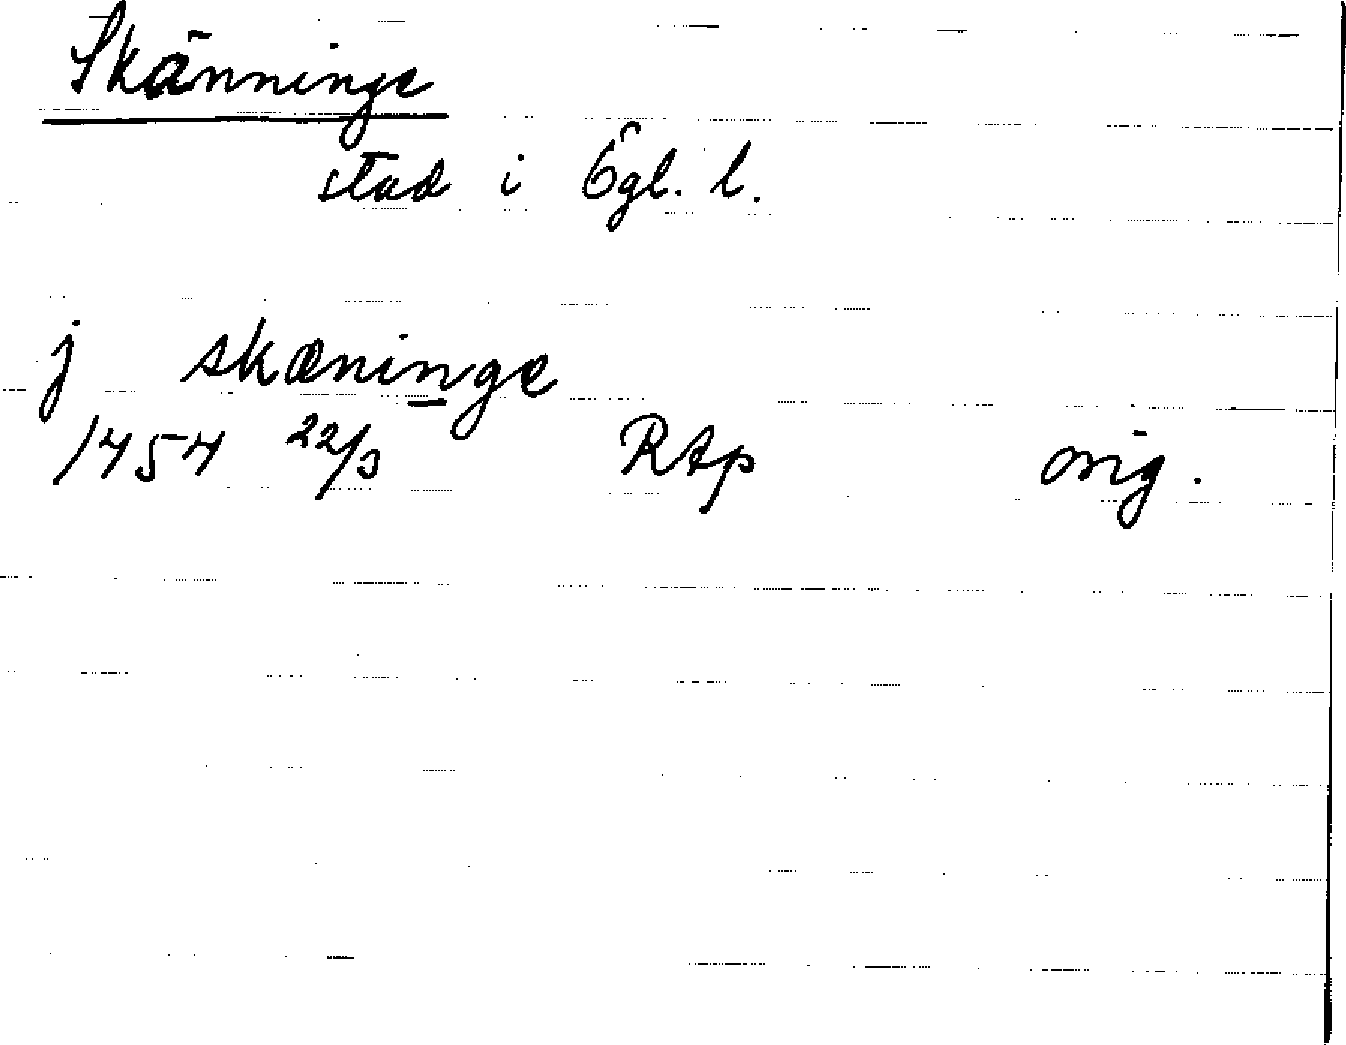 Skänninge
stad i Ögl. l.
j skæninge
1454 22/3 RAp orig.